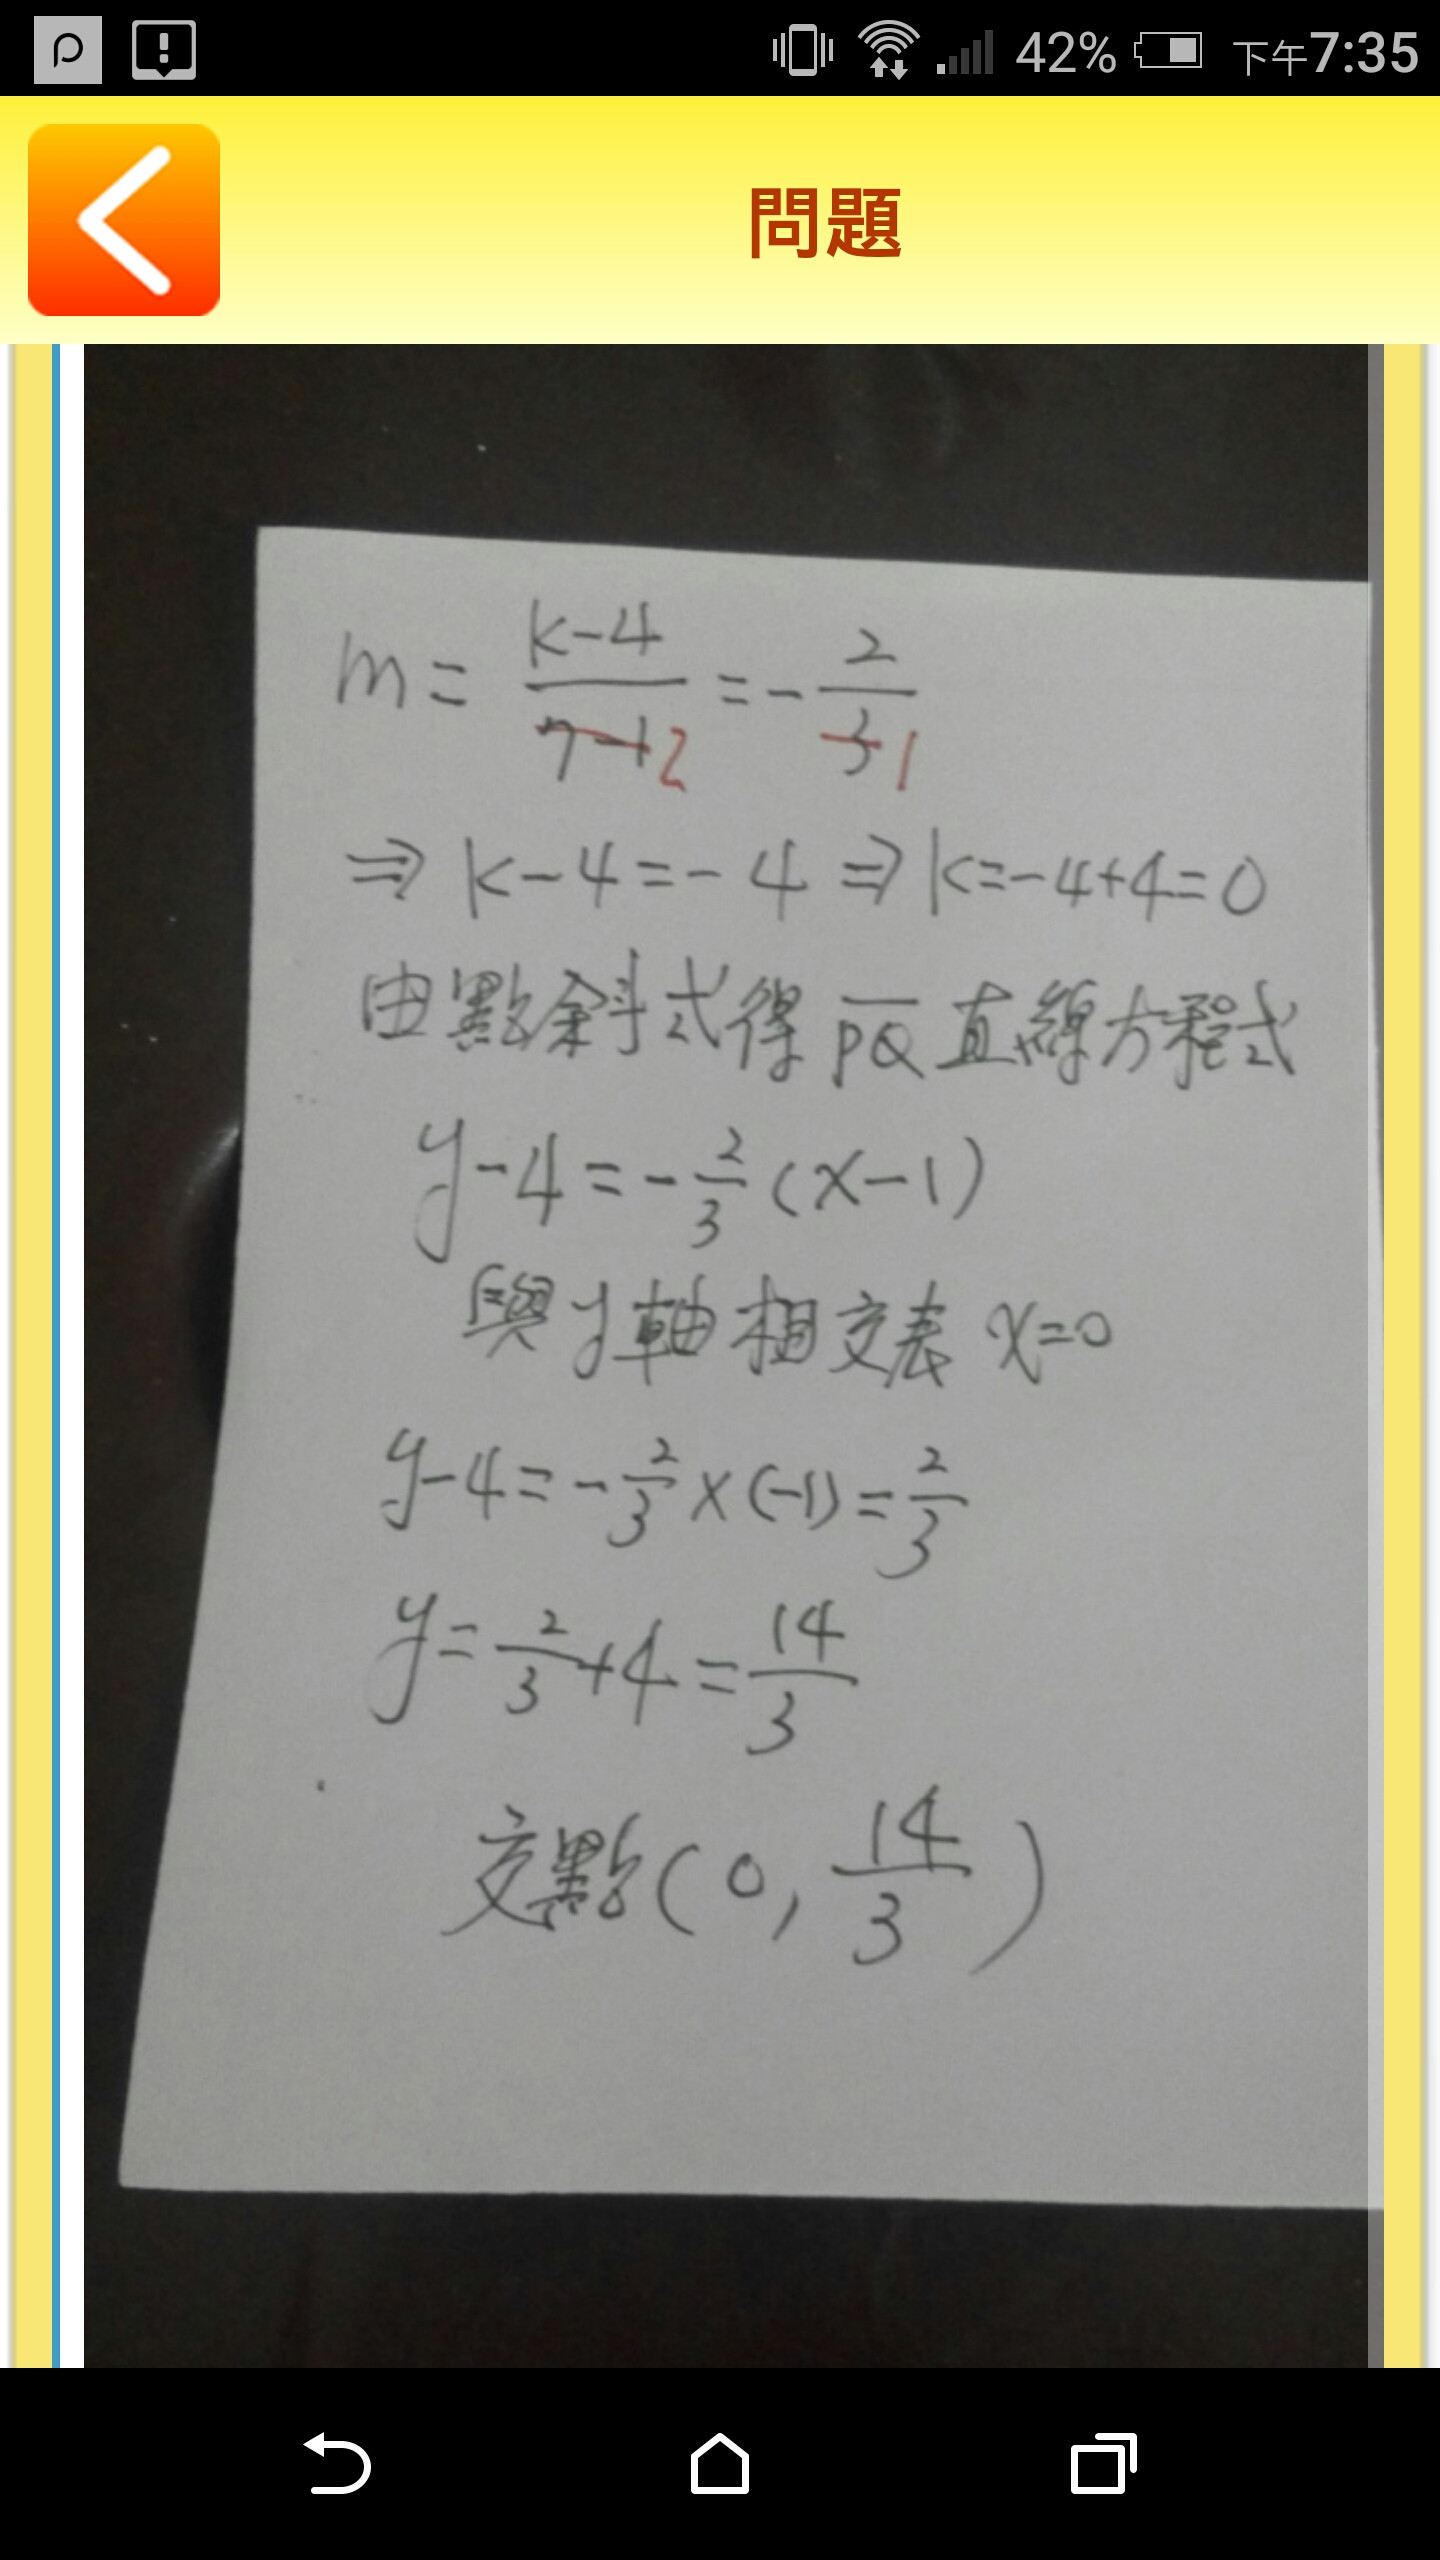 42% 下午7:35
問題
m = k-4 / 7-1 2 = - 2 / 3 1
⇒ k-4=-4 ⇒ k=-4+4=0
由點斜式得 PQ 直線方程式
y-4 = - 2/3 (x-1)
與y軸相交表 x=0
y-4 = - 2/3 x (-1) = 2/3
y = 2/3 +4 = 14/3
交點(0, 14/3)